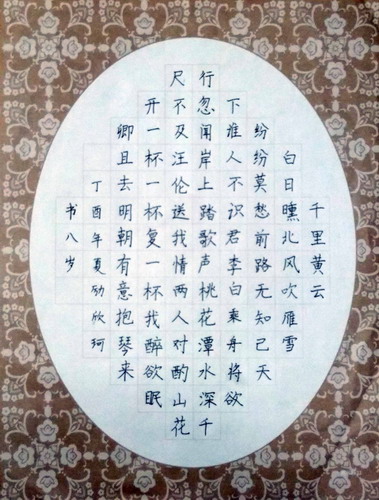 千里黄云
白日曛北风吹雁雪
纷纷莫愁前路无知己天
下谁人不识君李白乘舟将欲
行忽闻岸上踏歌声桃花潭水深千
尺不及汪伦送我情两人对酌山花
开一杯一杯复一杯我醉欲眠
卿且去明朝有意抱琴来
丁酉年夏励欣珂
书八岁